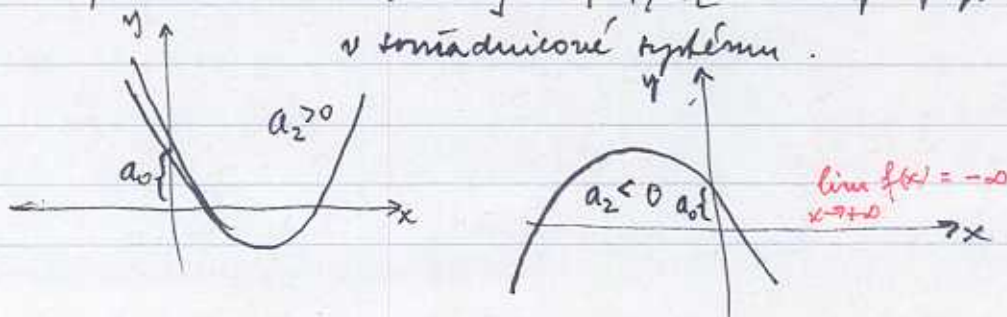 v souřadnicové systému.
y
a₂>0
a₀{
x
y
a₂<0 a₀{
lim f(x) = -∞
x→+∞
x